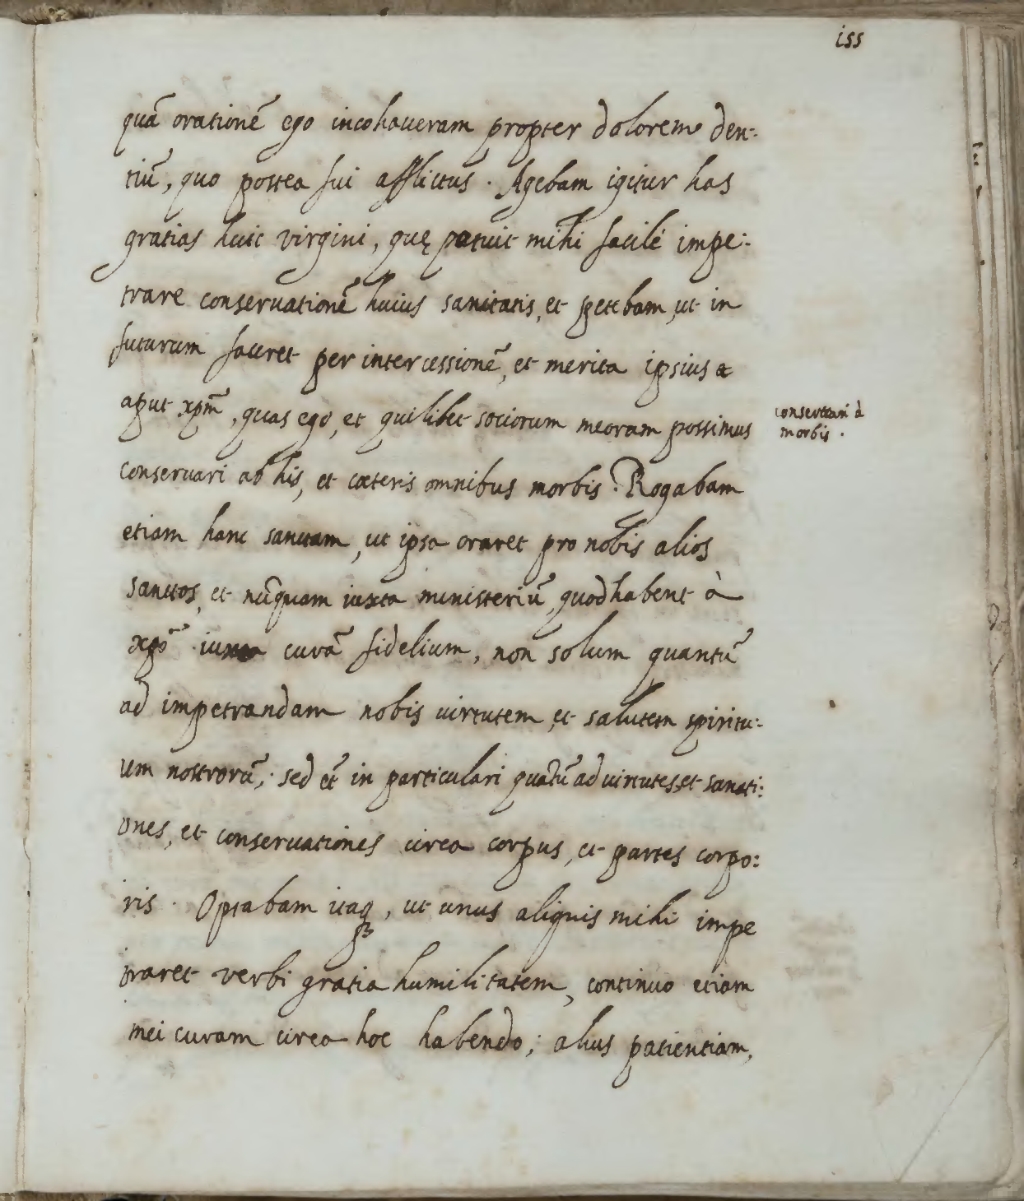 iss
quā orationē ego incohaueram propter dolorem den-
tiū, quo postea fui afflictus. Agebam igitur has
gratias huic virgini, quę potuit mihi facilè impe-
trare conseruationē huius sanitatis, et petebam, ut in
futurum faueret per intercessionē, et merita ipsius
aput xpm̄, quas ego, et quilibet sociorum meorum possimus
conseruari à
morbis.
conseruari ab his, et cæteris omnibus morbis. Rogabam
etiam hanc sanctam, ut ipsa oraret pro nobis alios
sanctos, et nūquam iuxta ministeriū, quod habent à
xpō iuxta curā fidelium, non solum quantū
ad impetrandam nobis uirtutem, et salutem spiritu-
um nostrorū; sed et̄ in particulari quātū ad uirtutes, et sanati-
ones, et conseruationes circa corpus, et partes corpo-
ris. Optabam itaq, ut unus aliquis mihi impe
traret verbi gratia humilitatem, continuo etiam
mei curam circa hoc habendo; alius patientiam,